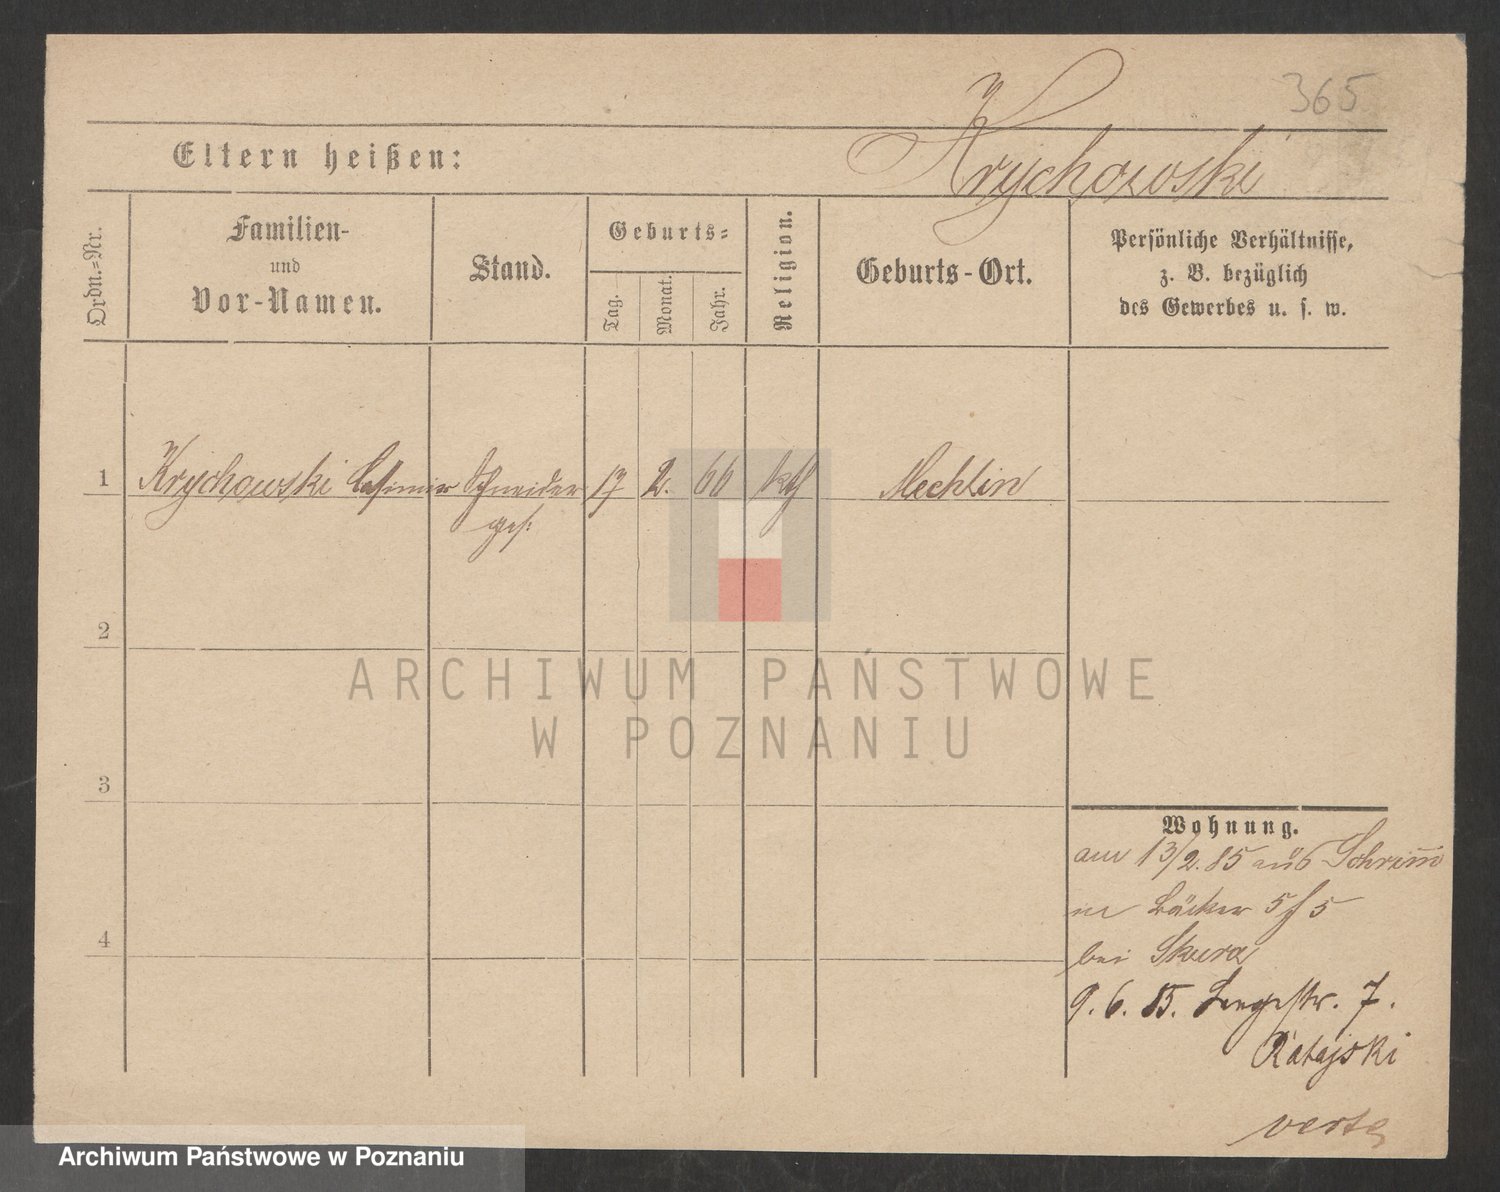 365
Krychowski
Eltern heißen:
Ordn.=Nr.
Familien-
und
Vor-Namen.
Stand.
Geburts=
Tag.
Monat.
Jahr.
Religion.
Geburts-Ort.
Persönliche Verhältnisse,
z. B. bezüglich
des Gewerbes u. s. w.
1 Krychowski Casimir Schneider 17 2. 66 kth Mechlin
ges:
2
3
4
ARCHIWUM PAŃSTWOWE
W POZNANIU
Wohnung.
am 13/2. 85 aus Schrim̄
in Bäcker 5 f 5
bei Skura
9. 6. 85. Langestr. 7.
Ratajski
verte
Archiwum Państwowe w Poznaniu